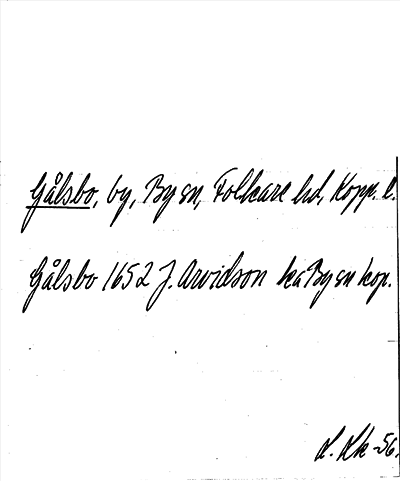 Gålsbo, by, By sn, Folkare hd, Kopp. l.
Gålsbo 1652 J. Arvidson ka By sn kop.